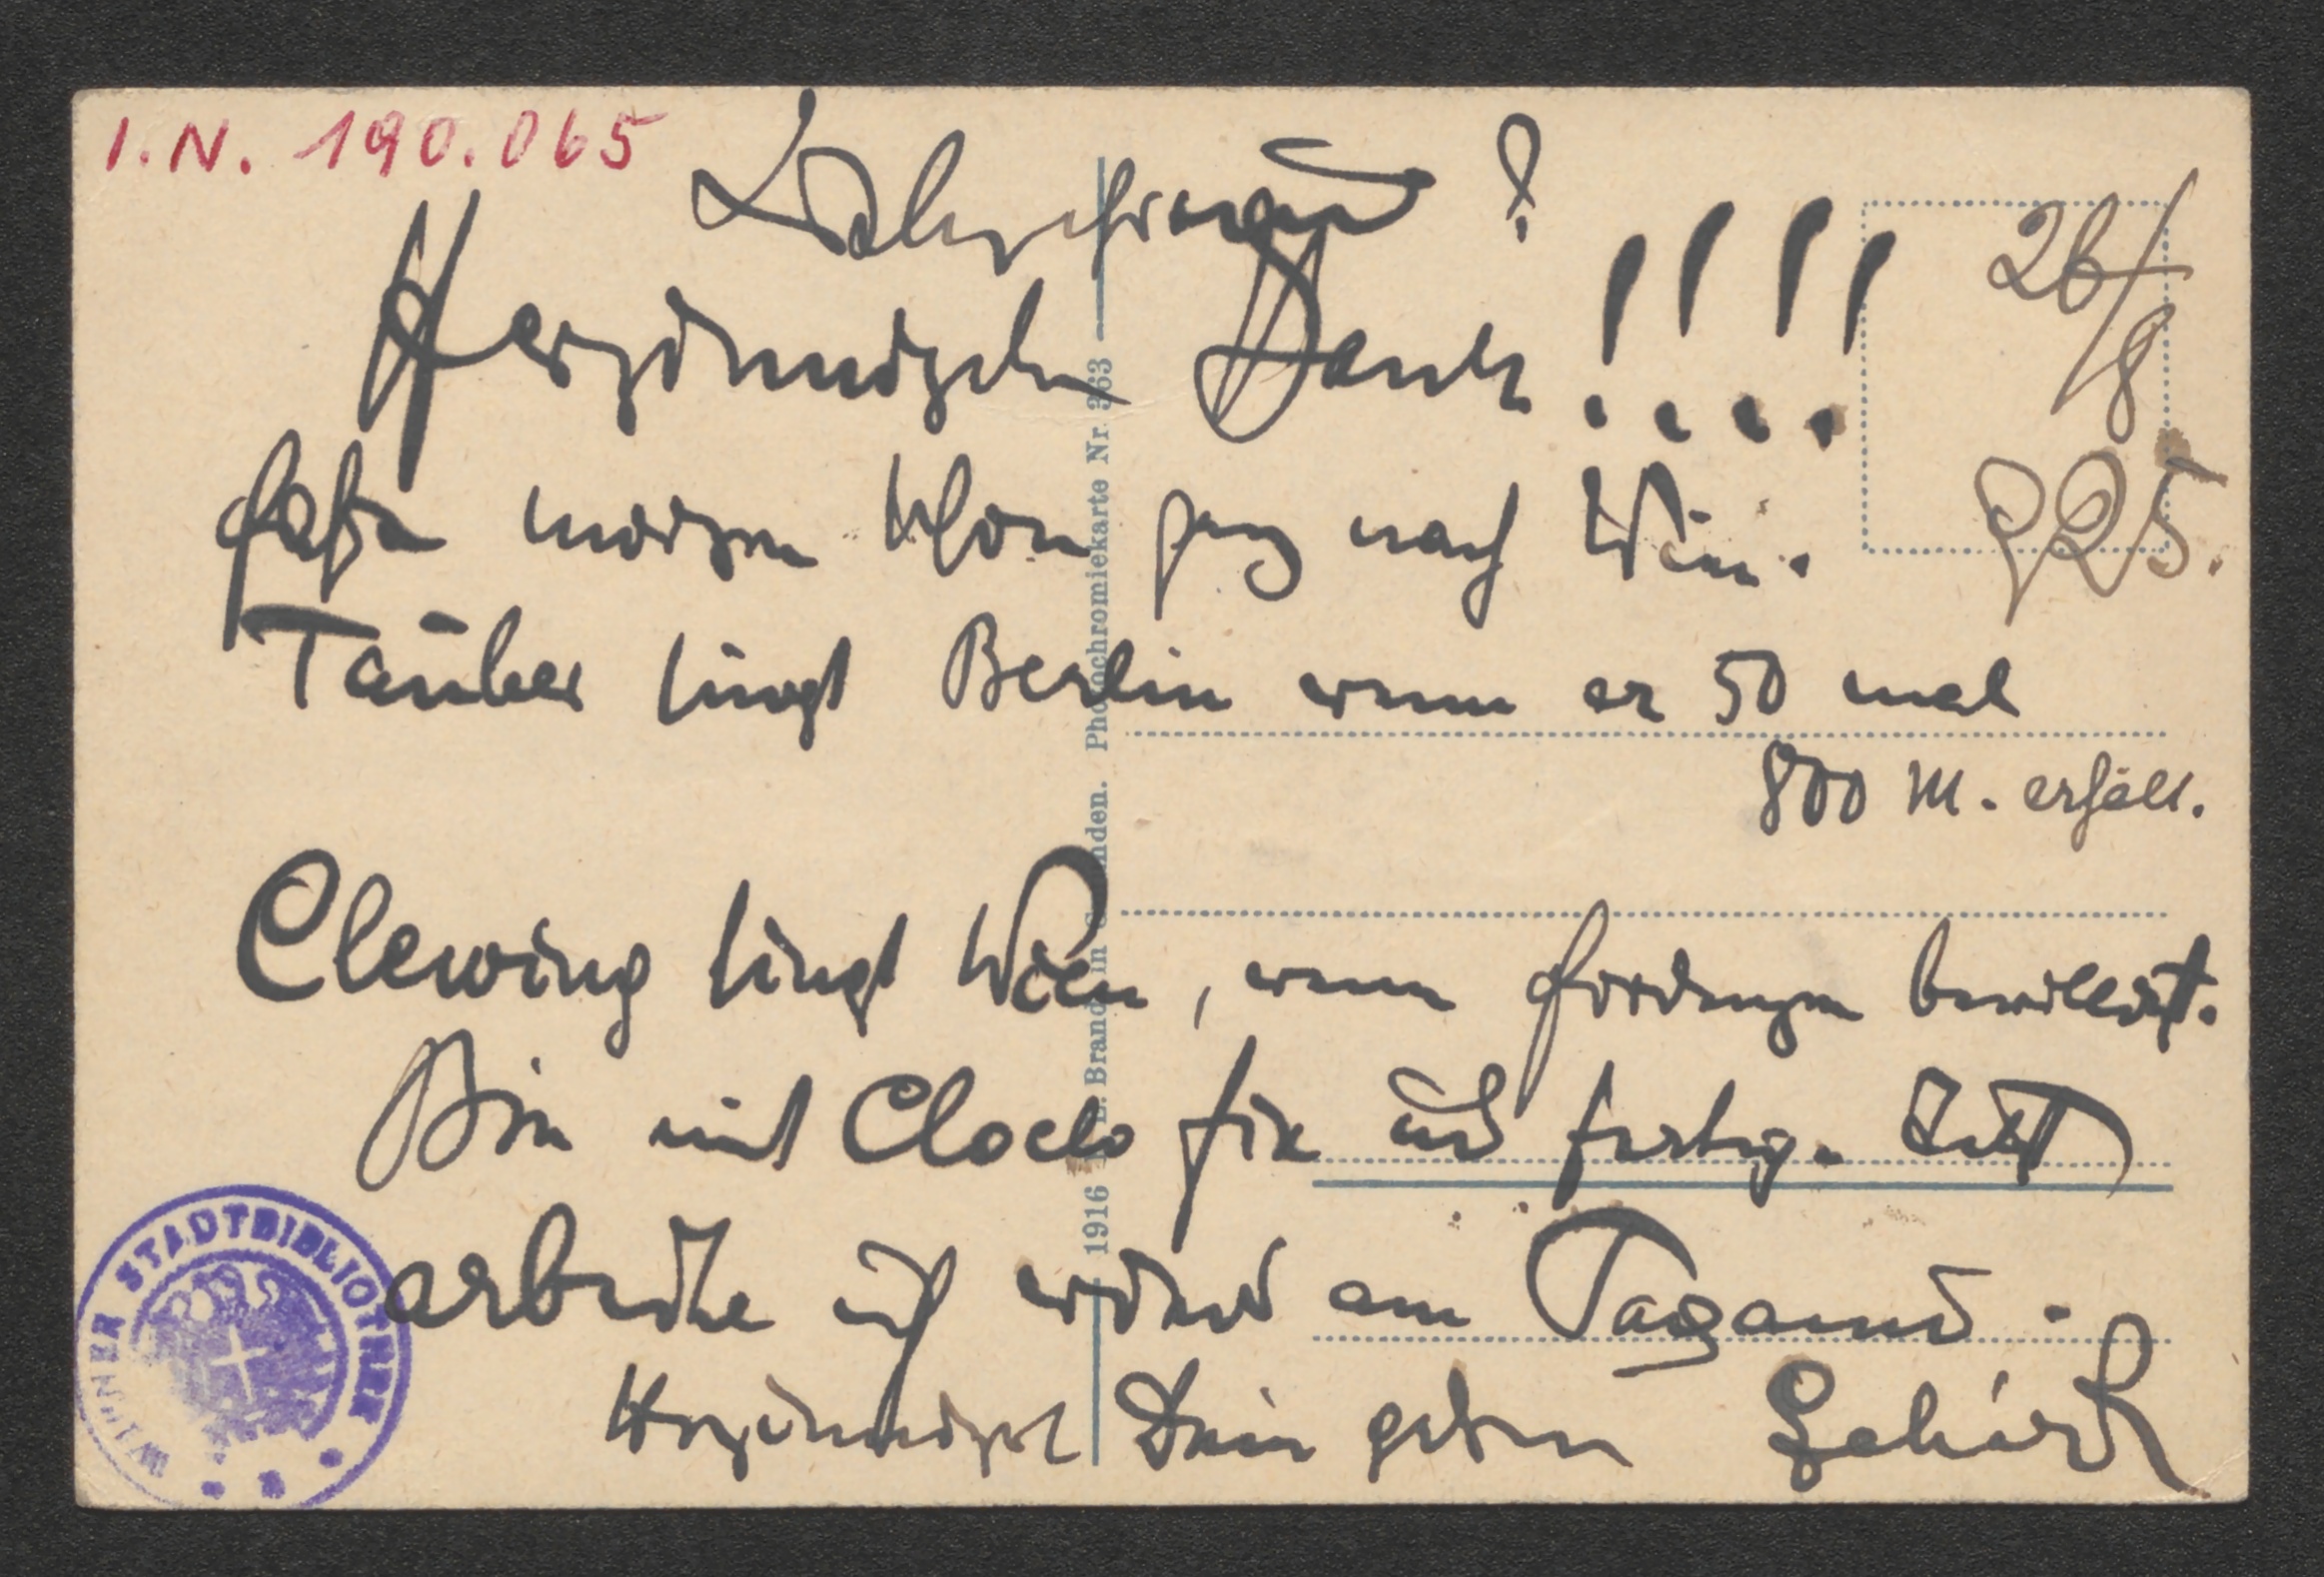 I.N. 190.065
26/8
925.
Herzinnigsten Dank!!!!
Fahre morgen schon ganz nach Wien.
Tauber singt Berlin wenn er 50 mal
800 M. erhält.
Clewing singt Wien, wenn Forderungen bewilligt.
Bin mit Cloclo fix und fertig. Jetzt
arbeite ich wieder am Paganini.
Herzinnigst Dein Lehár
1916 Brand in Gmunden. Photochromiekarte Nr. 363
WIENER STADTBIBLIOTHEK